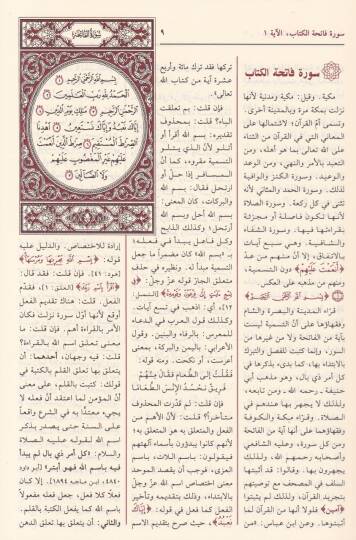 سورة فاتحة الكتاب، الآية ١
٩
سورة فاتحة الكتاب
مكية. وقيل: مكية ومدنية لأنها
نزلت بمكة مرة وبالمدينة أخرى.
وتسمى أمّ القرآن؛ لاشتمالها على
المعاني التي في القرآن من الثناء
على الله تعالى بما هو أهله، ومن
التعبد بالأمر والنهي، ومن الوعد
والوعيد. وسورة الكنز والوافية
لذلك. وسورة الحمد والمثاني لأنه
تثنى في كل ركعة. وسورة الصلاة
لأنها تكون فاضلة أو مجزئة
بقراءتها فيها. وسورة الشفاء
والشافية. وهي سبع آيات
بالاتفاق، إلا أنّ منهم من عدّ
﴿أنعمت عليهم﴾ دون التسمية،
ومنهم من مذهبه على العكس.
﴿بسم الله الرحمن الرحيم﴾
قرّاء المدينة والبصرة والشأم
وفقهاؤها على أنّ التسمية ليست
بآية من الفاتحة ولا من غيرها من
السور، وإنما كتبت للفصل والتبرك
بالابتداء بها، كما بدىء بذكرها في
كل أمر ذي بال، وهو مذهب أبي
حنيفة ـ رحمه الله ـ ومن تابعه،
ولذلك لا يجهر بها عندهم في
الصلاة. وقرّاء مكة والكوفة
وفقهاؤهما على أنها آية من الفاتحة
ومن كل سورة، وعليه الشافعي
وأصحابه ـ رحمهم الله ـ ولذلك
يجهرون بها. وقالوا: قد أثبتها
السلف في المصحف مع توصيتهم
بتجريد القرآن، ولذلك لم يثبتوا
﴿آمين﴾ فلولا أنها من القرآن لما
أثبتوها. وعن ابن عباس: «من
تركها فقد ترك مائة وأربع
عشرة آية من كتاب الله
تعالى».
فإن قلت: بم تعلقت
الباء؟ قلت: بمحذوف
تقديره: بسم الله أقرأ أو
أتلو؛ لأنّ الذي يتلو
التسمية مقروء، كما أنّ
المسافر إذا حلّ أو
ارتحل فقال: بسم الله
والبركات، كان المعنى:
بسم الله أحل وبسم الله
أرتحل؛ وكذلك الذابح
وكل فاعل يبدأ في فعله بـ
«بسم الله» كان مضمراً ما جعل
التسمية مبدأ له. ونظيره في حذف
متعلق الجارّ قوله عزّ وجلّ:
﴿في تسع آيات إلى فرعون وقومه﴾ [النمل:
١٢]، أي: اذهب في تسع آيات.
وكذلك قول العرب في الدعاء
للمعرس: بالرفاء والبنين، وقول
الأعرابي: باليمن والبركة، بمعنى
أعرست، أو نكحت. ومنه قوله:
فقلت إلى الطعام فقال منهم
فريق نحسد الإنس الطعاما
فإن قلت: لم قدّرت المحذوف
متأخراً؟ قلت: لأنّ الأهم من
الفعل والمتعلق به هو المتعلق به؛
لأنهم كانوا يبدؤون بأسماء آلهتهم
فيقولون: باسم اللات، باسم
العزى، فوجب أن يقصد الموحد
معنى اختصاص اسم الله عزّ وجلّ
بالابتداء، وذلك بتقديمه وتأخير
الفعل كما فعل في قوله: ﴿إياك
نعبد﴾، حيث صرح بتقديم الاسم
سورة الفاتحة
بسم الله الرحمن الرحيم
الحمد لله رب العالمين
الرحمن الرحيم مالك يوم الدين
إياك نعبد وإياك نستعين اهدنا
الصراط المستقيم صراط الذين أنعمت
عليهم غير المغضوب عليهم
ولا الضالين
إرادة للاختصاص. والدليل عليه
قوله: ﴿بسم الله مجراها ومرساها﴾
[هود: ٤١]. فإن قلت: فقد قال:
﴿اقرأ باسم ربك﴾ [العلق: ١]، فقدّم
الفعل. قلت: هناك تقديم الفعل
أوقع لأنها أوّل سورة نزلت فكان
الأمر بالقراءة أهم. فإن قلت: ما
معنى تعلق اسم الله بالقراءة؟
قلت: فيه وجهان، أحدهما: أن
يتعلق بها تعلق القلم بالكتبة في
قولك: كتبت بالقلم، على معنى
أنّ المؤمن لما اعتقد أنّ فعله لا
يجيء معتدّاً به في الشرع واقعاً
على السنة حتى يصدر بذكر
اسم الله لقوله عليه الصلاة
والسلام: «كل أمر ذي بال لم يبدأ
فيه باسم الله فهو أبتر» [أبو داود
٤٨٤٠، ابن ماجه ١٨٩٤]. إلا كان
فعلاً كلا فعل، جعل فعله مفعولاً
باسم الله كما يفعل الكتبة بالقلم.
والثاني: أن يتعلق بها تعلق الدهن